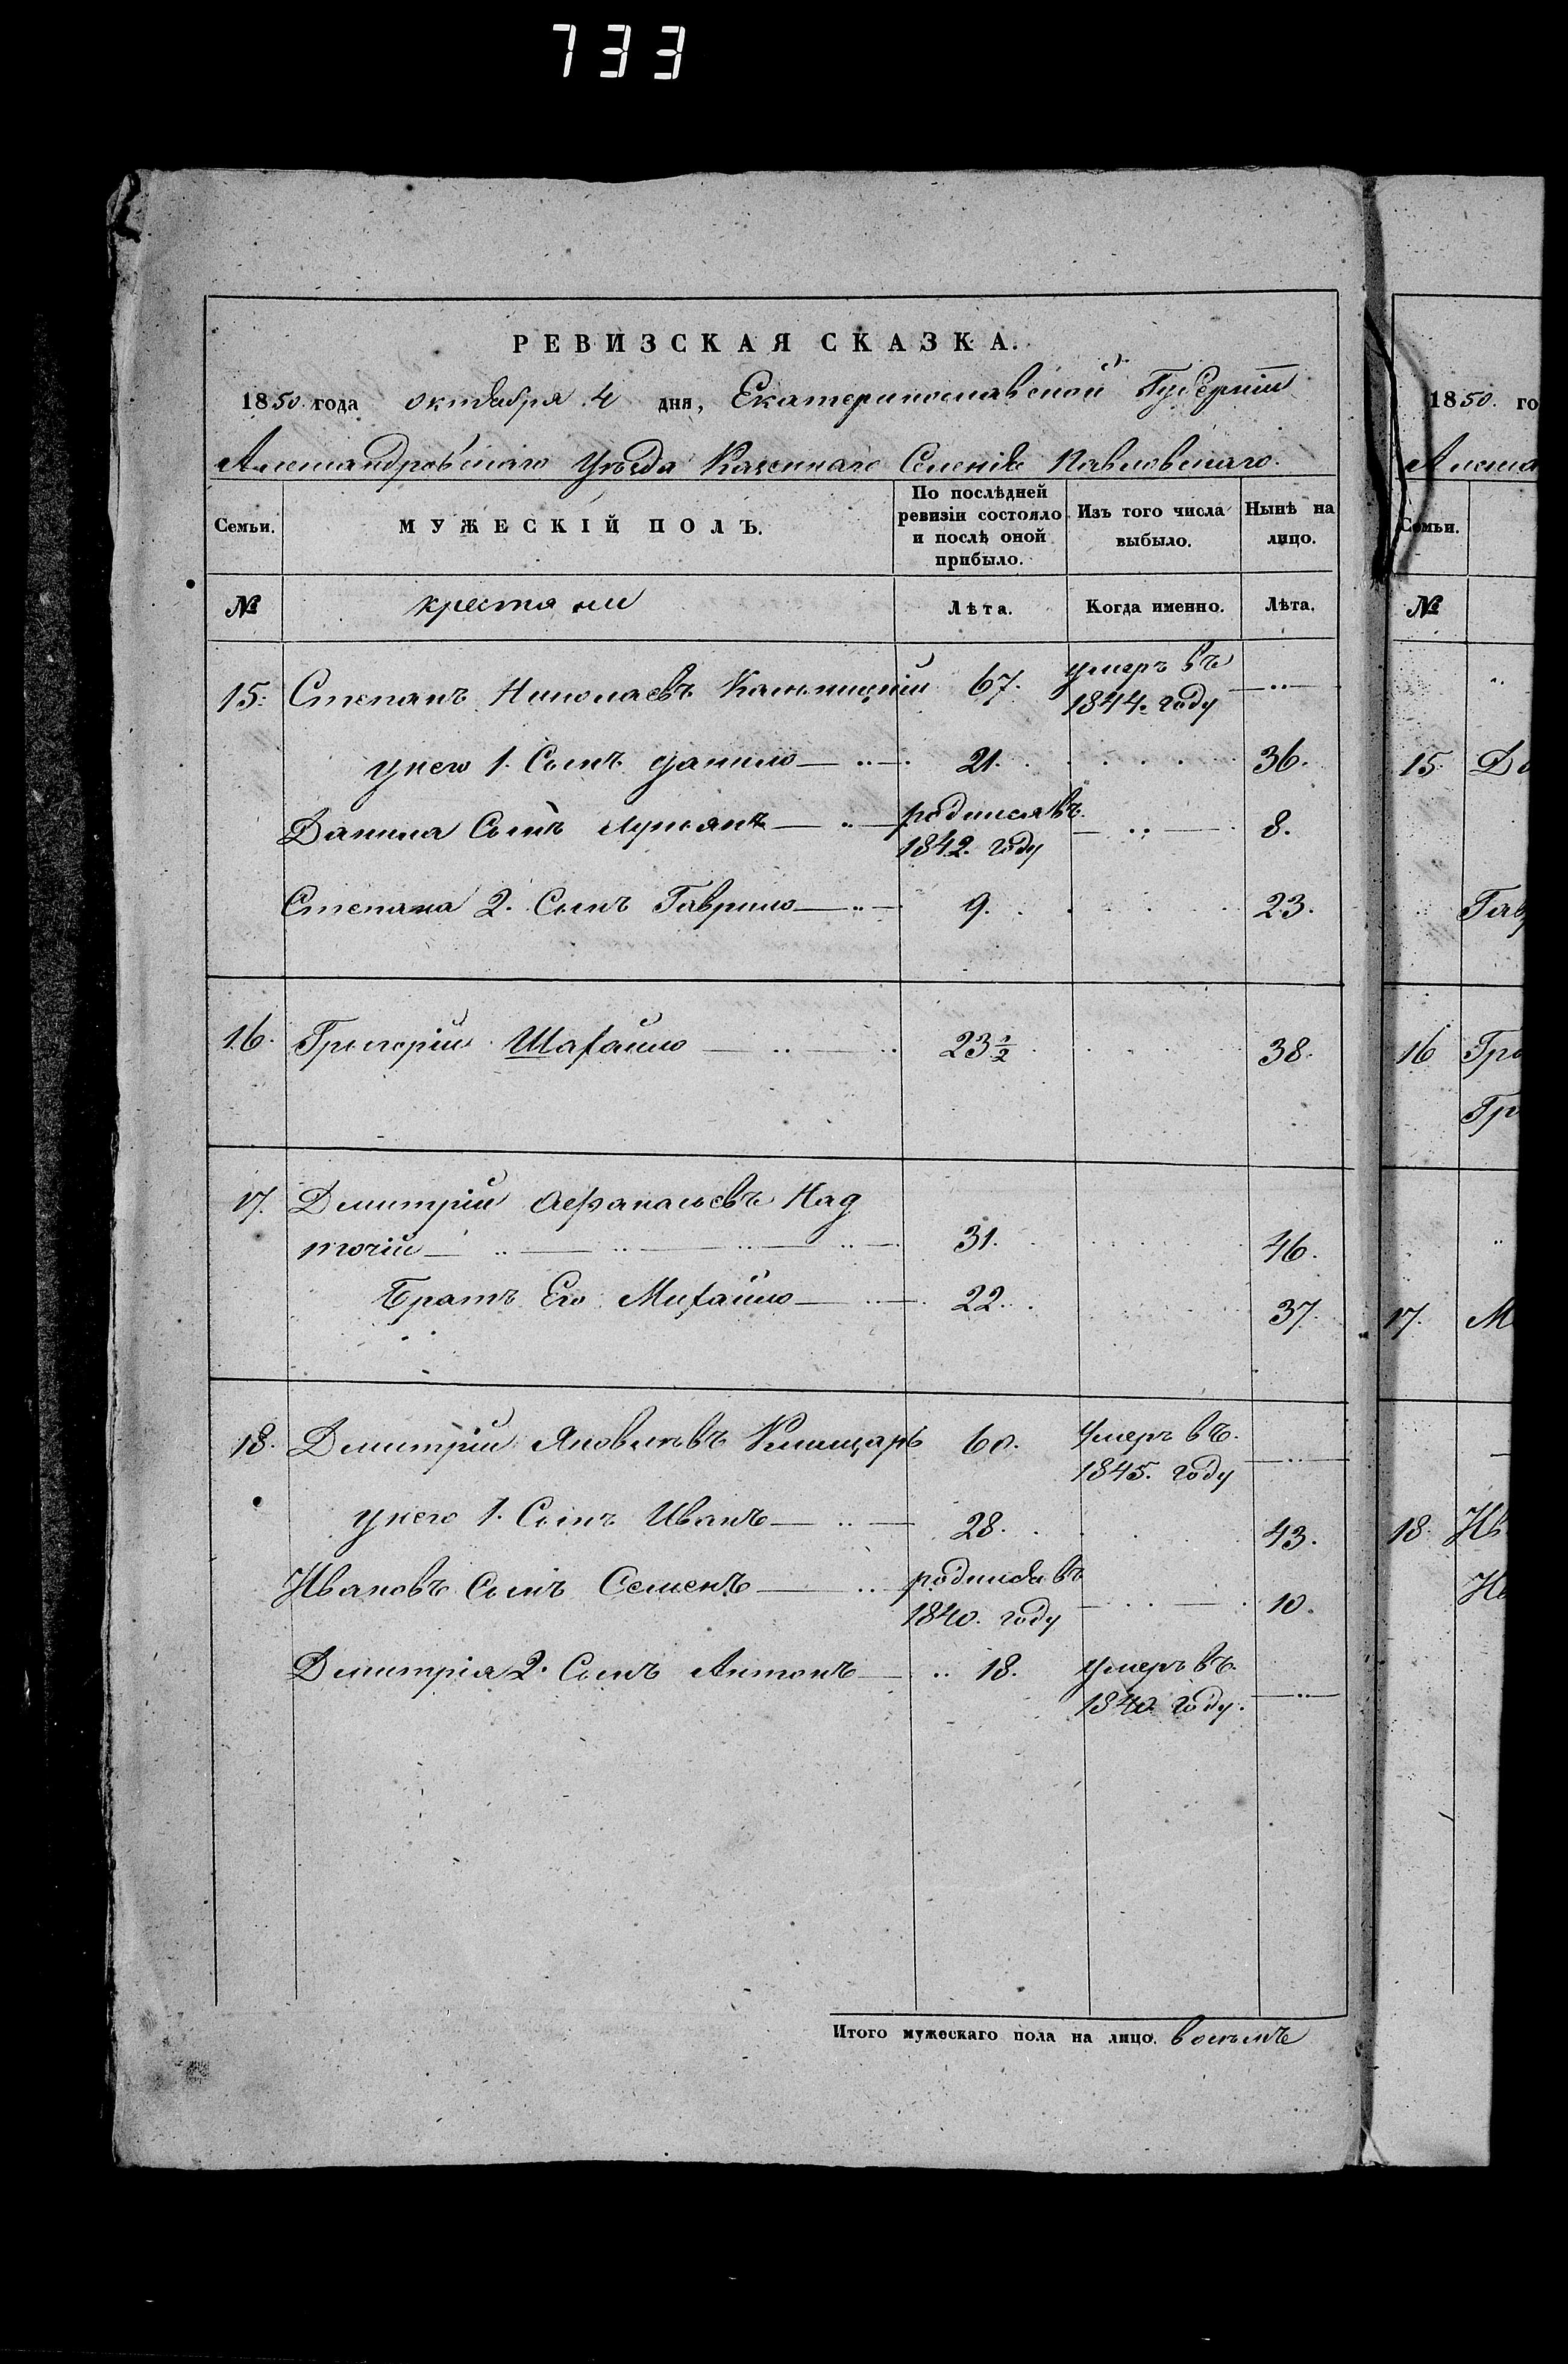 733
РЕВИЗСКАЯ СКАЗКА.
1850 года октября 4 дня, Екатеринославской Губерніи
Александровскаго Уѣзда Казеннаго Селенія Павловскаго.
Семьи. МУЖЕСКІЙ ПОЛЪ. По послѣдней ревизіи состояло и послѣ оной прибыло. Изъ того числа выбыло. Нынѣ на лицо.
№ крестяне Лѣта. Когда именно. Лѣта.
15. Степанъ Николаевъ 67. умеръ въ 1844. году
у него 1. Сынъ данило 21. 36.
Данила Сынъ Лукянъ родился въ 1842. году 8.
Степана 2. Сынъ Гаврило 9. 23.
16. Григорій Шахайло 23½ 38.
17. Дмитрій Афанасьевъ Над
точій 31. 46.
Братъ Его Михайло 22. 37.
18. Дмитрій Яковлевъ 60. Умеръ въ 1845. году
у него 1. Сынъ Иванъ 28. 43.
Ивановъ Сынъ Семенъ родился въ 1840. году 10.
Дмитрія 2. Сынъ Антонъ 18. умеръ въ 1840 году.
Итого мужескаго пола на лицо. восьмъ
1850. го
Семьи.
№
15
16 Гри
17. М
18. Ив